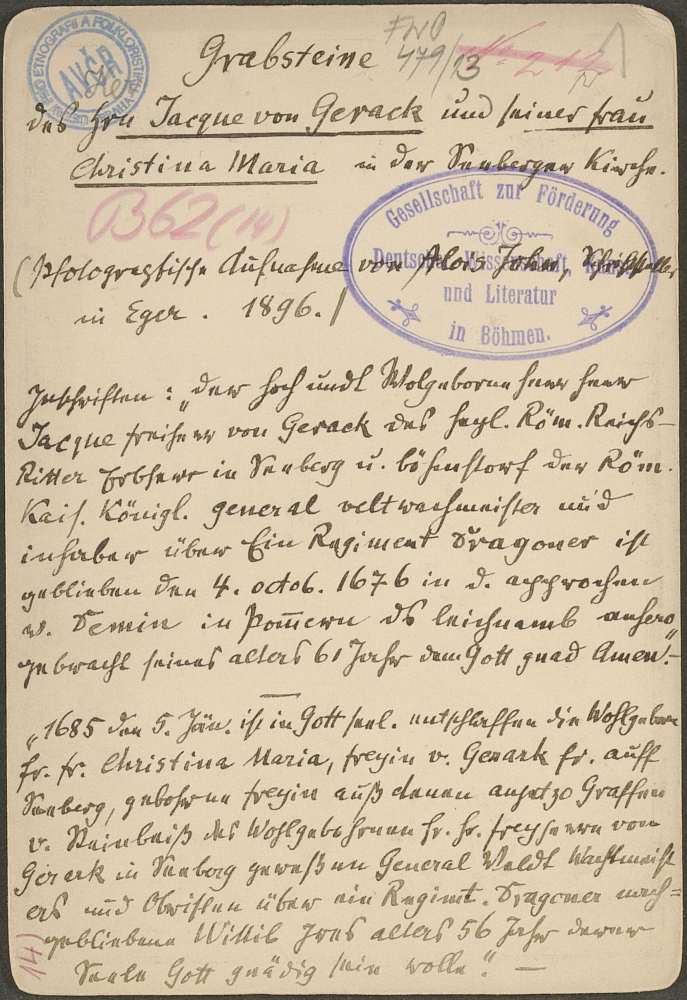 FWO
479/13
Grabsteine
des Hrn Jacque von Gerack und seiner Frau
Christina Maria in der Seeberger Kirche.
B62 (14)
(Photographische Aufnahme von Alois John, Schriftsteller
in Eger. 1896.)
Gesellschaft zur Förderung
Deutscher Wissenschaft, Kunst
und Literatur
in Böhmen.
AVČR
Inschriften: „der hoch undt Wolgeborne herr herr
Jacque freiherr von Gerack des heyl. Röm. Reichs-
Ritter Erbherr in Seeberg u. böhmstorf der Röm.
Kais. Königl. general veltwachmeister und
inhaber über Ein Regiment Dragoner ist
geblieben den 4. octob. 1676 in d. approchen
v. Demin in Pommern ds leichnamb anhero
gebracht seines alters 61 Jahr dem Gott gnad Amen."-
„1685 den 5. Jän. ist in Gott seel. entschlaffen die Wohlgeborne
fr. fr. Christina Maria, freyin v. Gerark fr. auff
Seeberg, gebohrne freyin auß denen anjetzo Graffen
v. Steinbeiß des Wohlgebohrnen hr. hr. freyherrn von
Gerark in Seeberg geweßenen General Veldt Wachtmeist
ers und Obristen über ein Regimt. Dragoner nach=
gebliebene Wittib Ihres alters 56 Jahr derer
Seele Gott gnädig sein wolle". —
14)